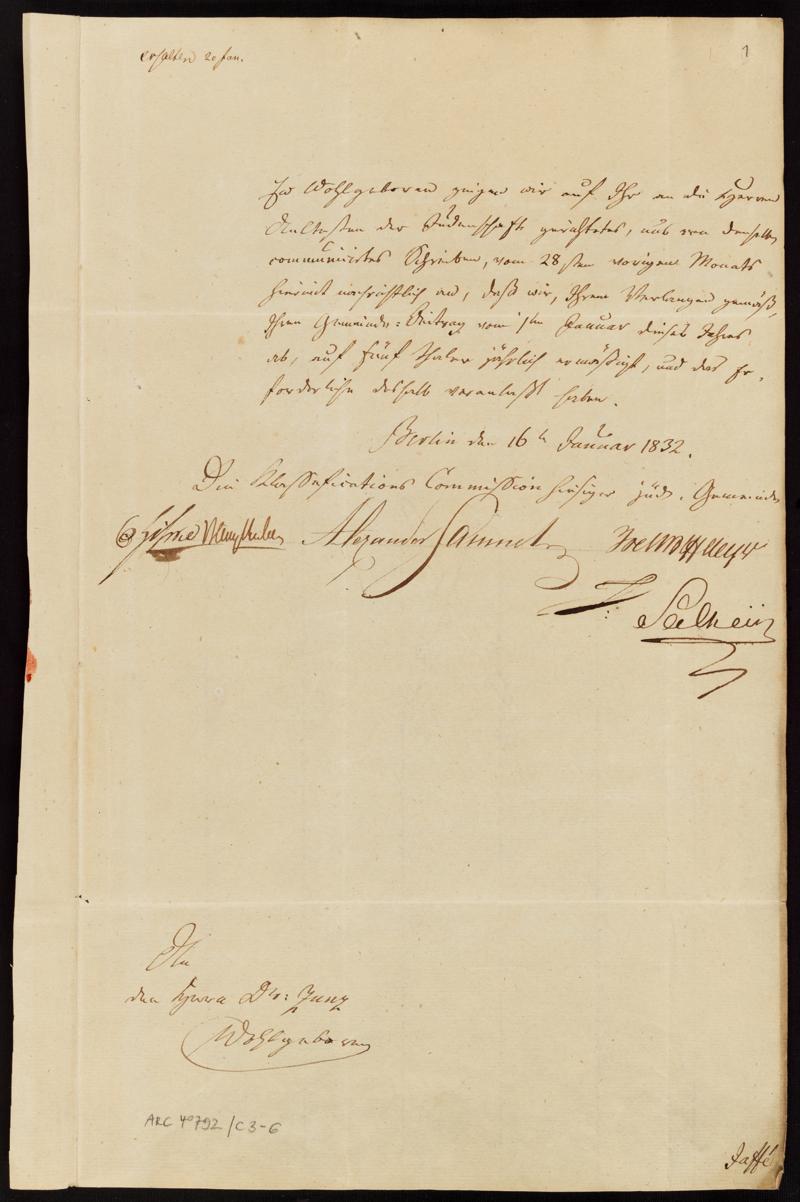 erhalten 20 Jan.
1
Ew Wohlgeboren zeigen wir auf Ihr an die Herren
Aeltesten der Judenschaft gerichtetes, uns von denselben
communicirtes Schreiben, vom 28sten vorigen Monats
hiermit nachrichtlich an, daß wir, Ihrem Verlangen gemäß,
Ihren Gemeinde-Beitrag vom 1ten Januar dieses Jahres
ab, auf fünf Thaler jährlich ermäßigt, und das Er-
forderliche deshalb veranlaßt haben.
Berlin den 16ten Januar 1832.
Die Klassifications Commission hiesiger jüd. Gemeinde
Alexander Samuel Meyer
An
den Herrn Dr: Zunz
Wohlgeboren
ARC 4° 792/C3-6
Jaffé